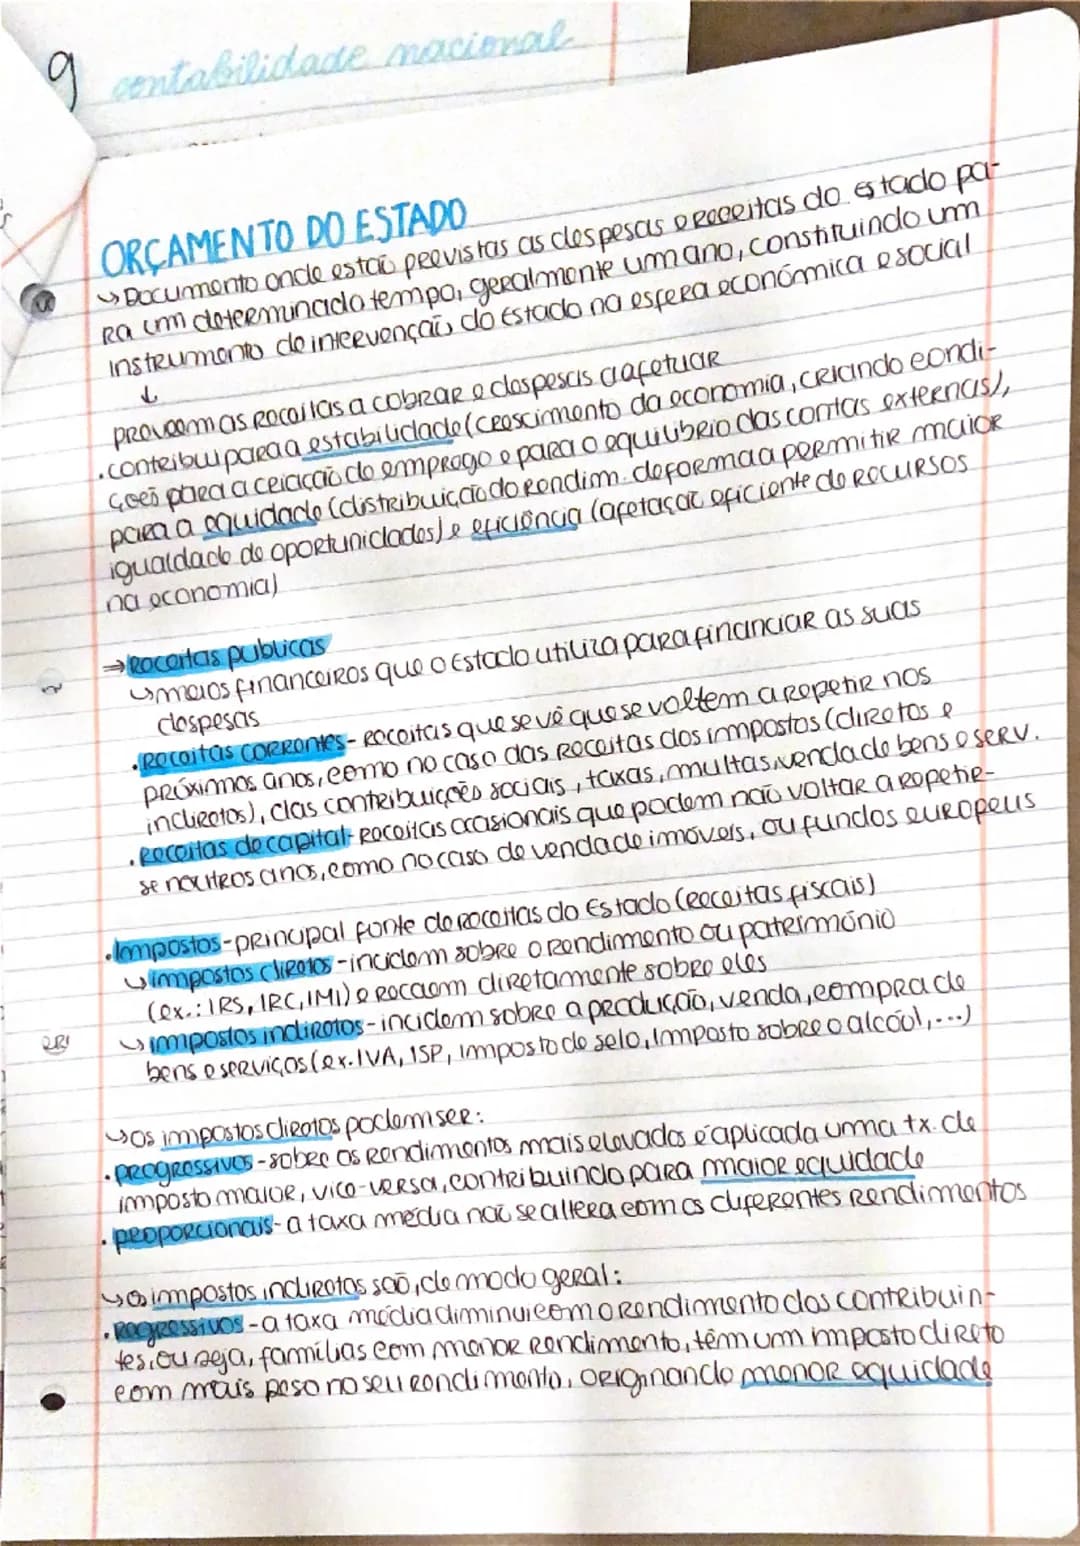 9 contabilidade nacional
ORÇAMENTO DO ESTADO
↳ Documento onde estão previstas as despesas e receitas do estado pa-
ra um determinado tempo, geralmente um ano, constituindo um
instrumento de intervenção do Estado na esfera económica e social
↓
preveem as receitas a cobrar e despesas a efetuar
. contribui para a estabilidade (crescimento da economia, criando condi-
ções para a criação do emprego e para o equilíbrio das contas externas),
para a equidade (distribuição do rendim. de forma a permitir maior
igualdade de oportunidades) e eficiência (afetação eficiente de recursos
na economia)
⇒ Receitas publicas
↳ meios financeiros que o Estado utiliza para financiar as suas
despesas
. Receitas correntes - Receitas que se vê que se voltem a repetir nos
próximos anos, como no caso das receitas dos impostos (diretos e
indiretos), das contribuições sociais, taxas, multas, venda de bens e serv.
. Receitas de capital - Receitas ocasionais que podem não voltar a repetir-
se noutros anos, como no caso de venda de imóveis, ou fundos europeus
. Impostos - principal fonte de receitas do Estado (receitas fiscais)
↳ impostos diretos - incidem sobre o rendimento ou património
(ex.: IRS, IRC, IMI) e recaem diretamente sobre eles
↳ impostos indiretos - incidem sobre a produção, venda, compra de
bens e serviços (ex. IVA, ISP, imposto de selo, Imposto sobre o alcoól, ...)
↳ Os impostos diretos podem ser:
. progressivos - sobre os rendimentos mais elevados é aplicada uma tx. de
imposto maior, vice-versa, contribuindo para maior equidade
. proporcionais - a taxa média não se altera com os diferentes rendimentos
↳ Os impostos indiretos são, de modo geral:
. Regressivos - a taxa média diminui com o rendimento dos contribuin-
tes, ou seja, famílias com menor rendimento, têm um imposto direto
com mais peso no seu rendimento, originando menor equidade